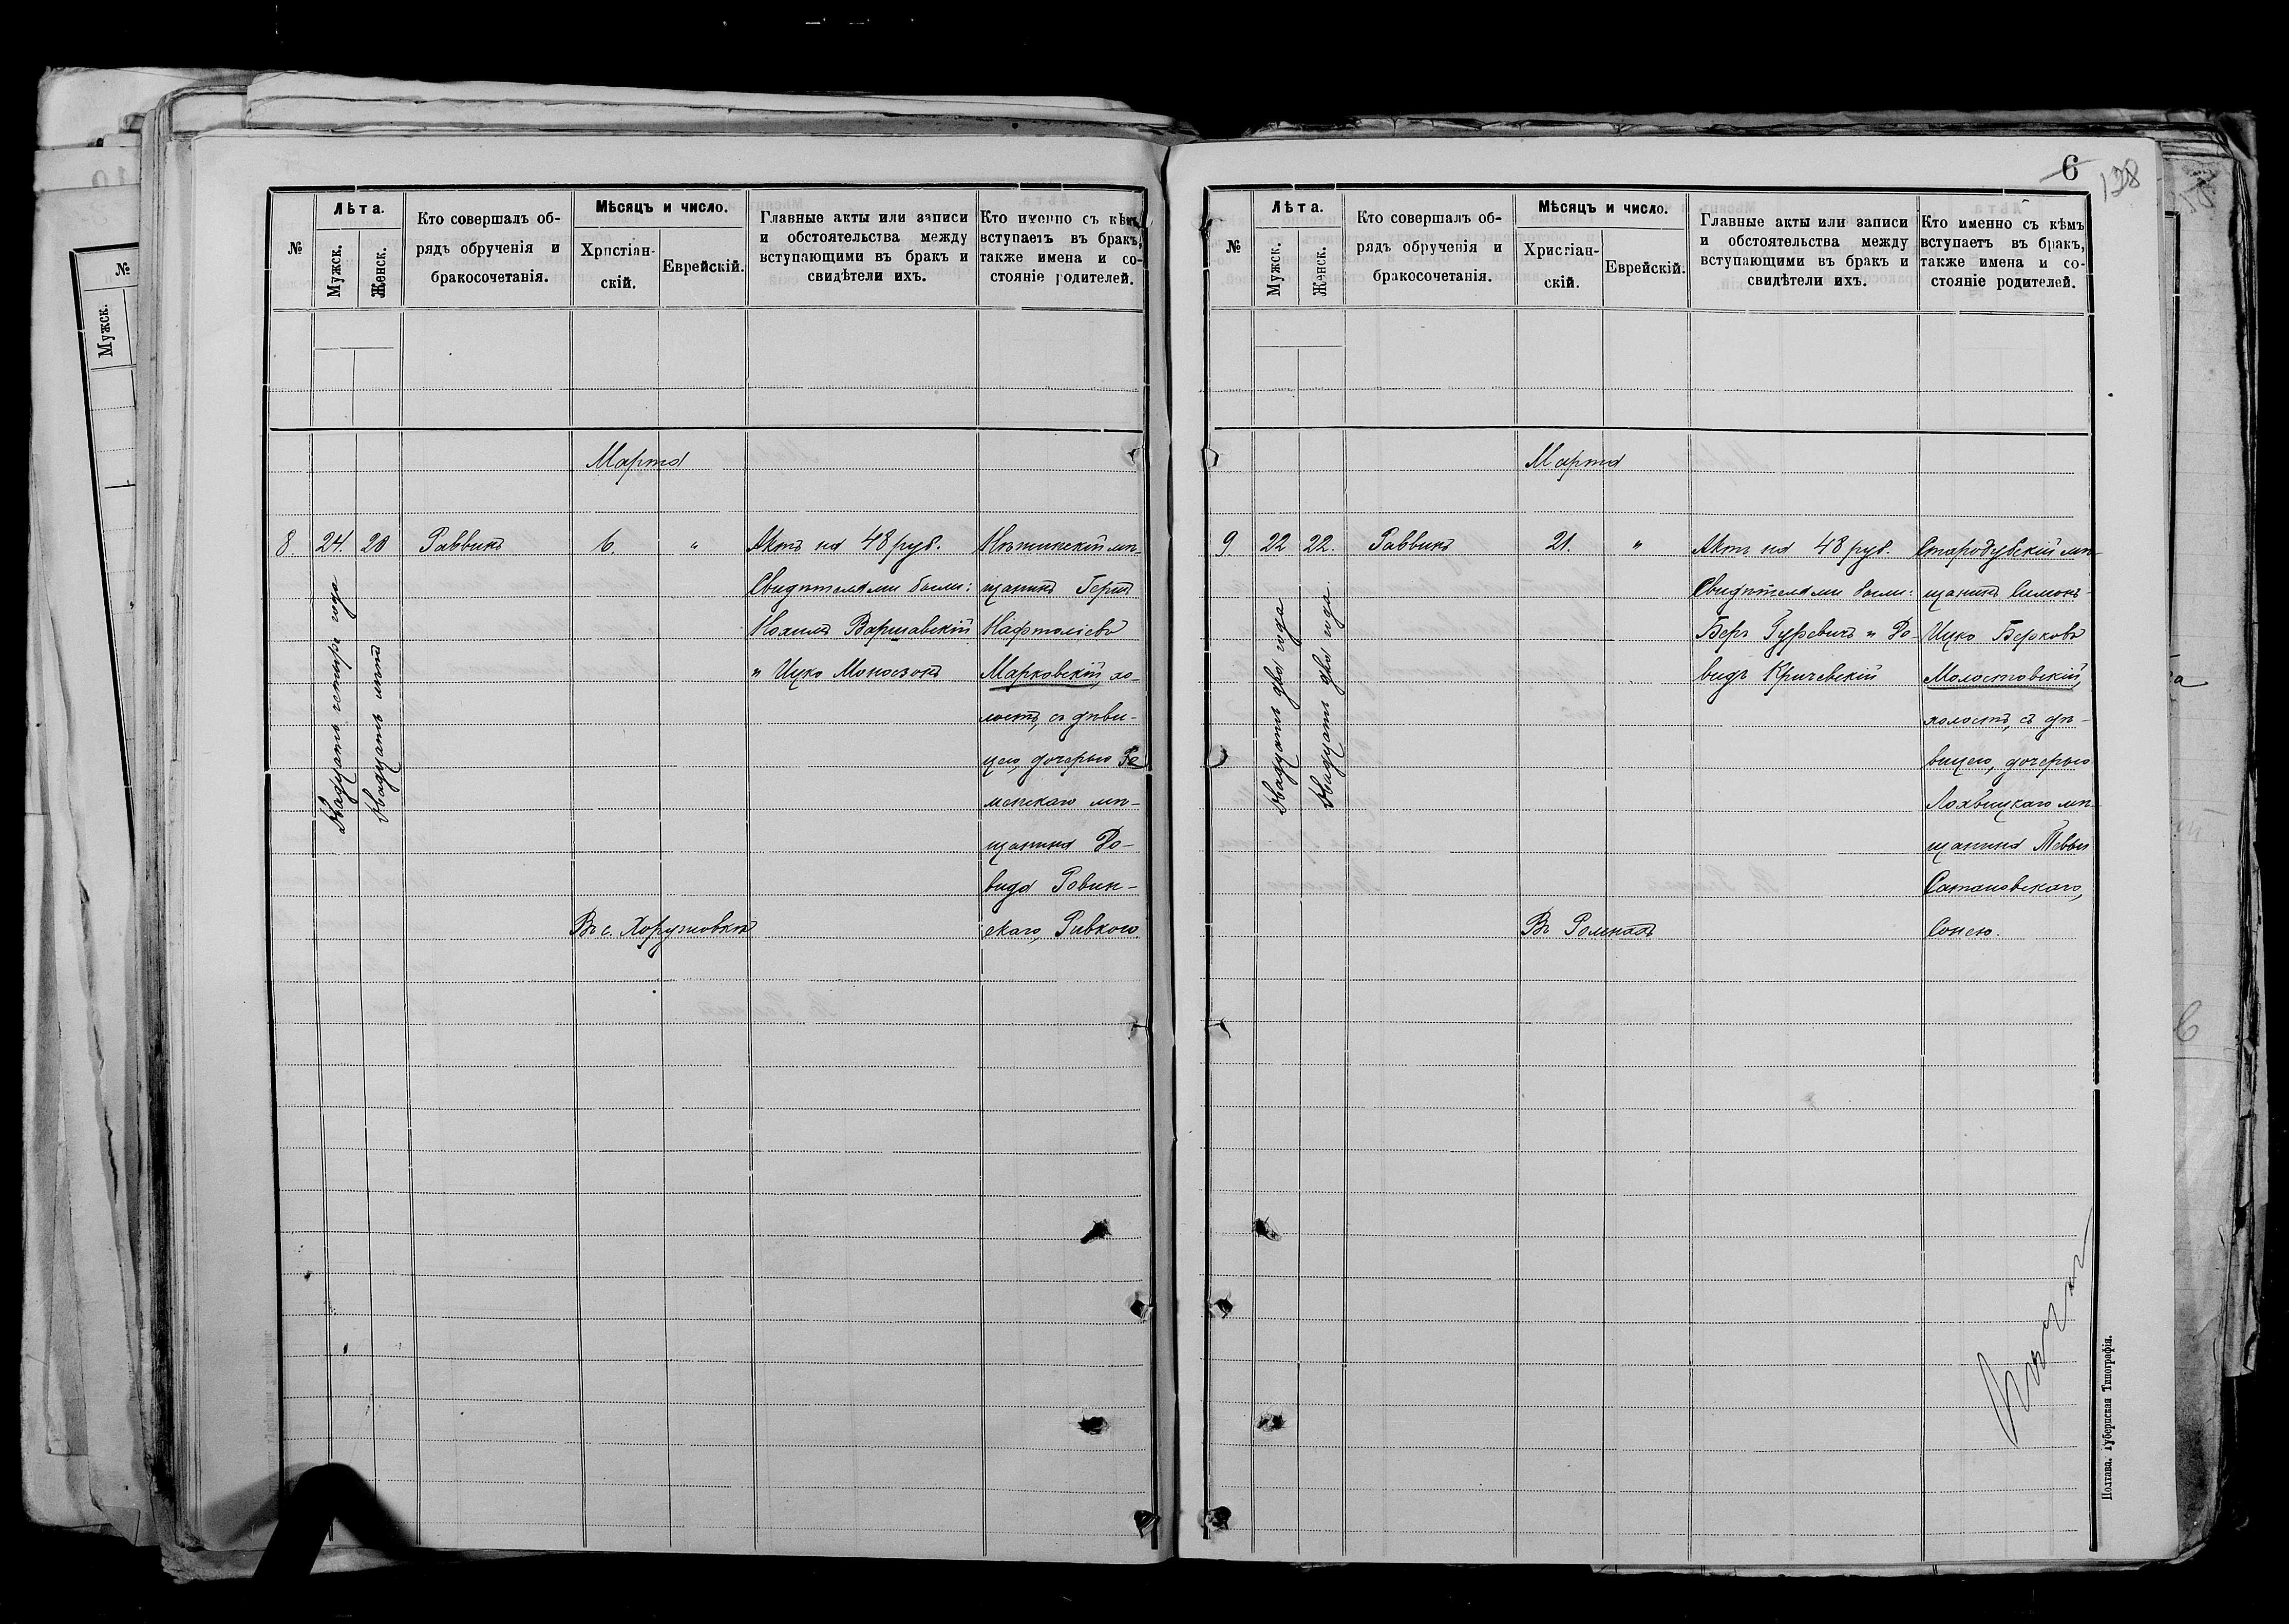 №
Лѣта.
Мужск.
Женск.
Кто совершалъ об-
рядъ обрученія и
бракосочетанія.
Мѣсяцъ и число.
Христіан-
скій.
Еврейскій.
Главные акты или записи
и обстоятельства между
вступающими въ бракъ и
свидѣтели ихъ.
Кто именно съ кѣмъ
вступаетъ въ бракъ,
также имена и со-
стояніе родителей.
Марта
8
24.
20
Двадцать четыре года
Двадцать лѣтъ
Раввинъ
6.
"
Актъ на 48 руб.
Свидѣтелями были:
Нохимъ Варшавскій
и Ицко Моносзонъ
Нѣжинскій мѣ-
щанинъ Герцъ
Нафтоліевъ
Марковскій, хо-
лостъ, съ дѣви-
цею, дочерью Ро
менскаго мѣ-
щанина До-
вида Ровин-
скаго, Ривкою
Въ с. Хоружовкѣ
6
128
№
Лѣта.
Мужск.
Женск.
Кто совершалъ об-
рядъ обрученія и
бракосочетанія.
Мѣсяцъ и число.
Христіан-
скій.
Еврейскій.
Главные акты или записи
и обстоятельства между
вступающими въ бракъ и
свидѣтели ихъ.
Кто именно съ кѣмъ
вступаетъ въ бракъ,
также имена и со-
стояніе родителей.
Марта
9
22
22.
Двадцать два года
Двадцать два года.
Раввинъ
21.
"
Актъ на 48 руб.
Свидѣтелями были:
Беръ Гуревичъ и До
видъ Кричевскій
Стародубскій мѣ-
щанинъ Симонъ-
Ицко Берковъ
Молостовскій,
холостъ, съ дѣ-
вицею, дочерью
Лохвицкаго мѣ-
щанина Тевьи
Сатановскаго,
Сонею.
Въ Ромнахъ
Полтава. Губернская Типографія.
№
Мужск.